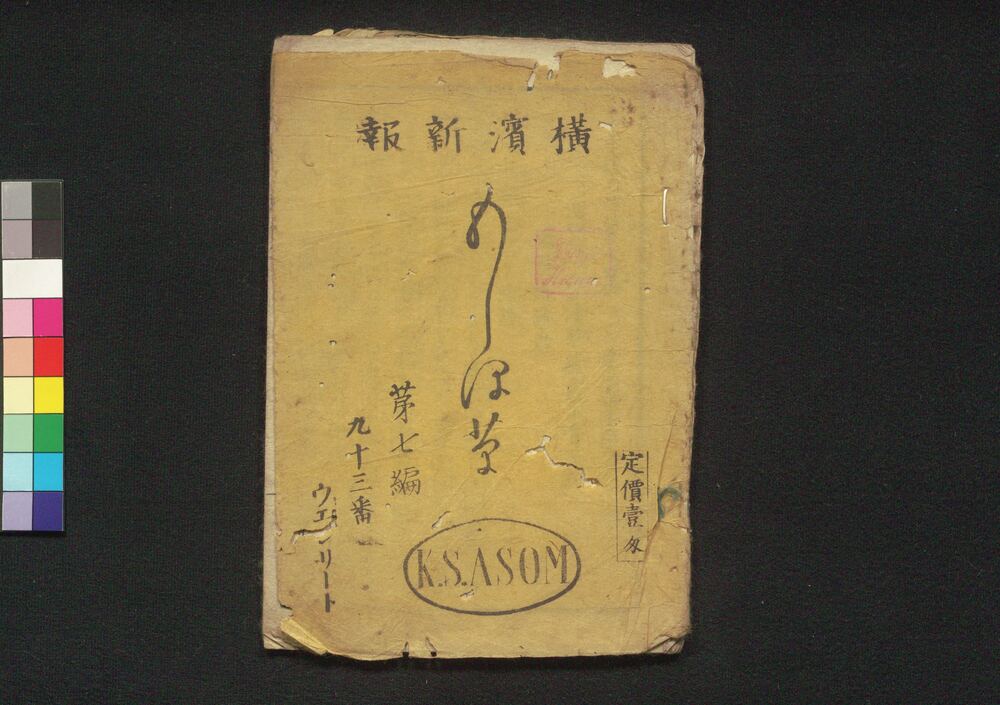 横濱新報
もしほ草
第七編
九十三番
ウエンリート
定價壹匁
K.S.ASOM